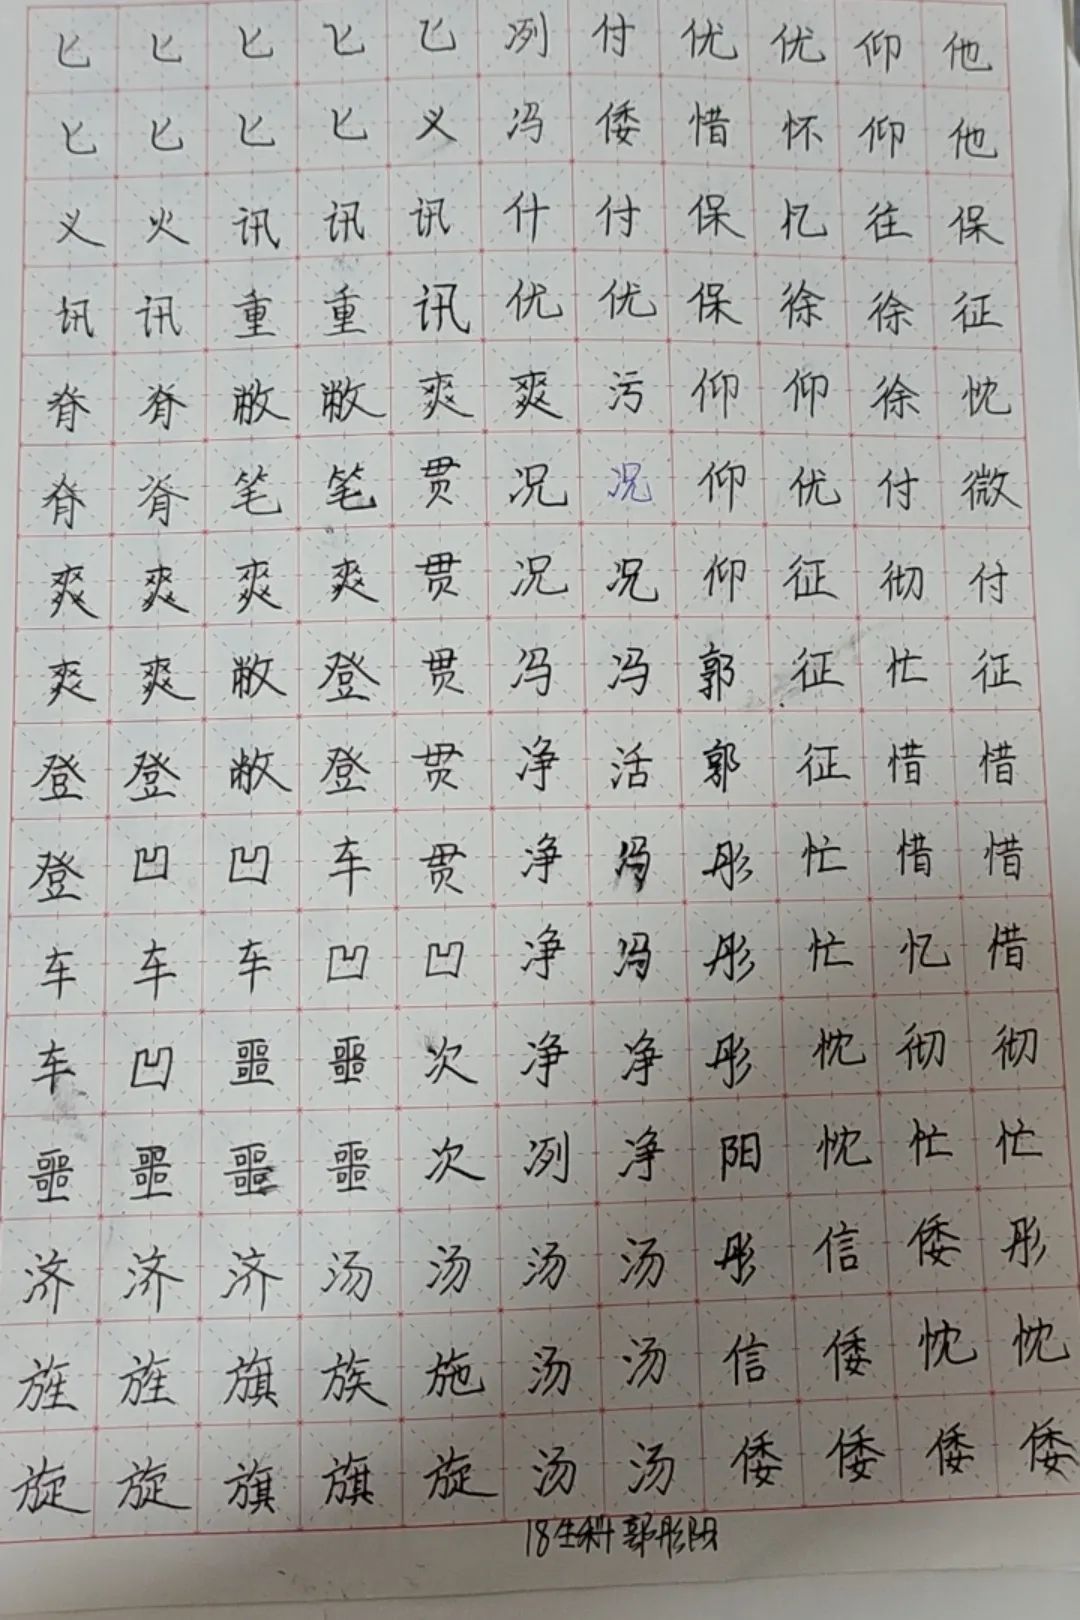 匕匕匕匕匕冽付优优仰他
匕匕匕匕义冯倭惜怀仰他
义火讯讯讯什付保忆往保
讯讯重重讯优优保徐徐征
脊脊敝敝爽爽污仰仰徐忱
脊脊笔笔贯况况仰优付微
爽爽爽爽贯况况仰征彻付
爽爽敝登贯冯冯郭征忙征
登登敝登贯净活郭征惜惜
登凹凹车贯净冯彤忙惜惜
车车车凹凹净冯彤忙忆惜
车凹噩噩次净净彤忱彻彻
噩噩噩噩次冽净阳忱忙忙
济济济汤汤汤汤彤信倭彤
旌旌旗族施汤汤信倭忱忱
旋旋旗旗旋汤汤倭倭倭倭
18生科郭彤阳